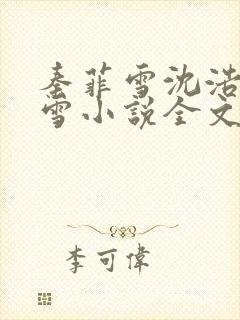 秦菲雪沈浩
雪小说全文
李可偉